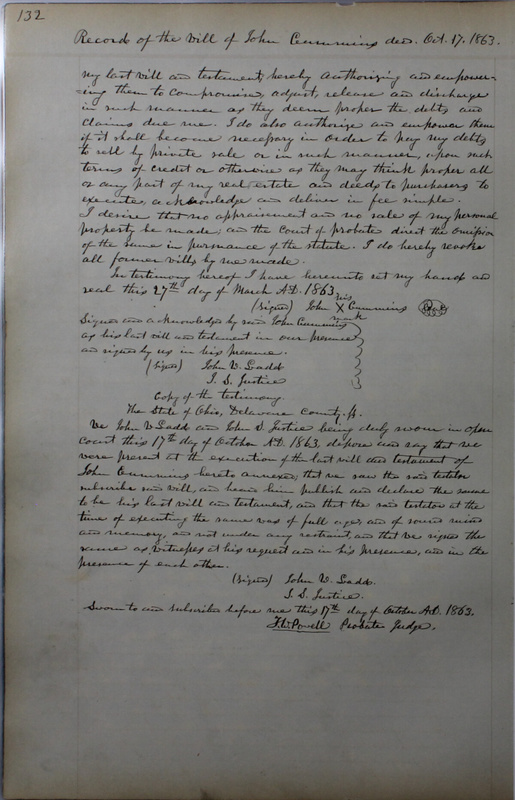 132
Record of the Will of John Cummins decd. Oct. 17, 1863.
my last will and testament, hereby authorizing and empower-
ing them to compromise, adjust, release and discharge
in such manner as they deem proper the debts and
claims due me. I do also authorize and empower them
if it shall become necessary in order to pay my debts
to sell by private sale or in such manner, upon such
terms of credit or otherwise as they may think proper all
or any part of my real estate and deeds to purchasers to
execute, acknowledge and deliver in fee simple.
I desire that no appraisment and no sale of my personal
property be made, and the Court of probate direct the omission
of the same in pursuance of the statute. I do hereby revoke
all former wills by me made.
In testimony hereof I have hereunto set my hand and
seal this 27th day of March A.D. 1863.
(signed) John his X mark Cummins Seal
Signed and acknowledged by said John Cummins
as his last will and testament in our presence
and signed by us in his presence.
(signed) John V. Ladd
I. S. Justice
Copy of the testimony.
The State of Ohio, Delaware County, ss.
We John V Ladd and John S Justice being duly sworn in open
Court this 17th day of October A.D. 1863, depose and say that we
were present at the execution of the last will and testament of
John Cummins hereto annexed, that we saw the said testator
subscribe said will, and heard him publish and declare the same
to be his last will and testament, and that the said testator at the
time of executing the same was of full age, and of sound mind
and memory, and not under any restraint, and that we signed the
same as witnesses at his request and in his presence, and in the
presence of each other.
(signed) John V. Ladd.
I. S. Justice.
Sworn to and subscribed before me this 17th day of October A.D. 1863.
T. W. Powell Probate Judge.